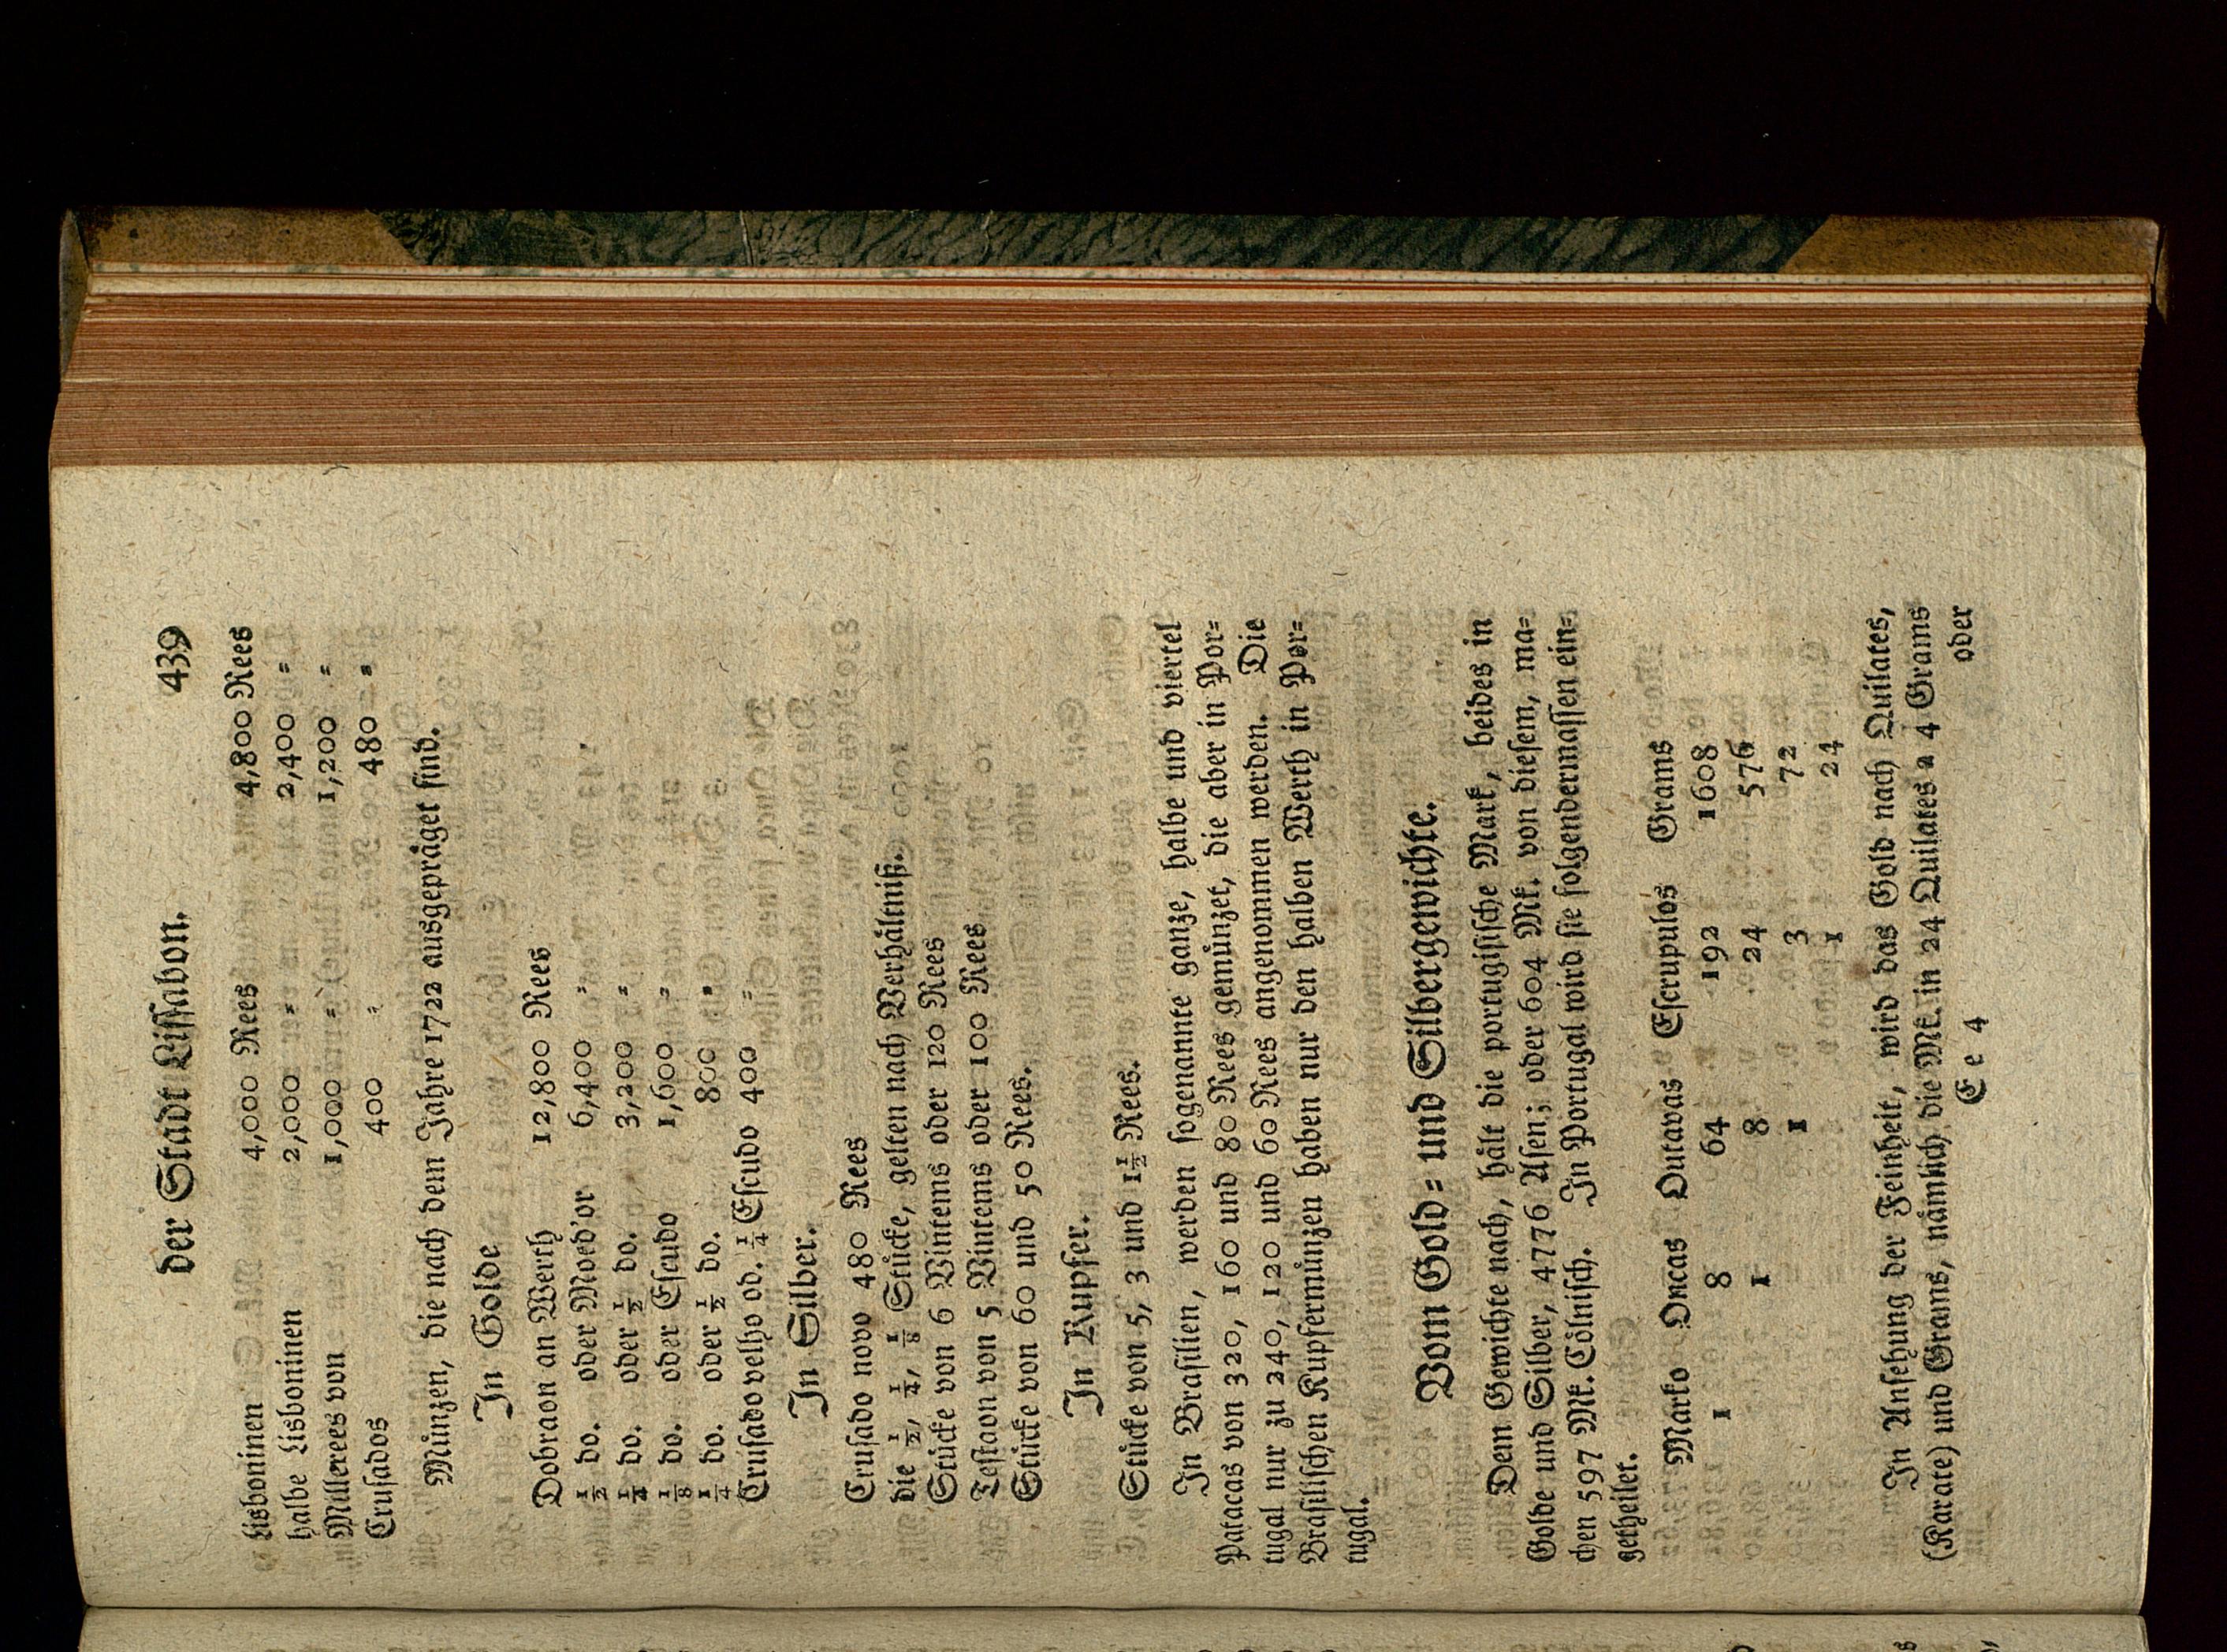 der Stadt Lissabon. 439
Lisboninen 4,000 Rees 4,800 Rees
halbe Lisboninen 2,000 = 2,400 =
Millerees von 1,000 = 1,200 =
Crusados 400 = 480 =
Münzen, die nach dem Jahre 1722 ausgepräget sind.
In Golde
Dobraon an Werth 12,800 Rees
½ do. oder Moed'or 6,400 =
¼ do. oder ½ do. 3,200 =
⅛ do. oder Escudo 1,600 =
¼ do. oder ½ do. 800 =
Crusado velho od. ¼ Escudo 400 =
In Silber.
Crusado novo 480 Rees
die ½, ¼, ⅛ Stücke, gelten nach Verhältniß.
Stücke von 6 Vintems oder 120 Rees
Testaon von 5 Vintems oder 100 Rees
Stücke von 60 und 50 Rees.
In Kupfer.
Stücke von 5, 3 und 1½ Rees.
In Brasilien, werden sogenannte ganze, halbe und viertel
Patacas von 320, 160 und 80 Rees gemünzet, die aber in Por=
tugal nur zu 240, 120 und 60 Rees angenommen werden. Die
Brasilischen Kupfermünzen haben nur den halben Werth in Por=
tugal.
Vom Gold= und Silbergewichte.
Dem Gewichte nach, hält die portugisische Mark, beides in
Golde und Silber, 4776 Asen; oder 604 Mk. von diesem, ma=
chen 597 Mk. Cölnisch. In Portugal wird sie folgendermassen ein=
getheilet.
Marko Oncas Outavas Escrupulos Grams
1 8 64 192 1608
1 8 24 576
1 3 72
1 24
In Ansehung der Feinheit, wird das Gold nach Quilates,
(Karate) und Grams, nämlich die Mk. in 24 Quilates a 4 Grams
Ee 4 oder